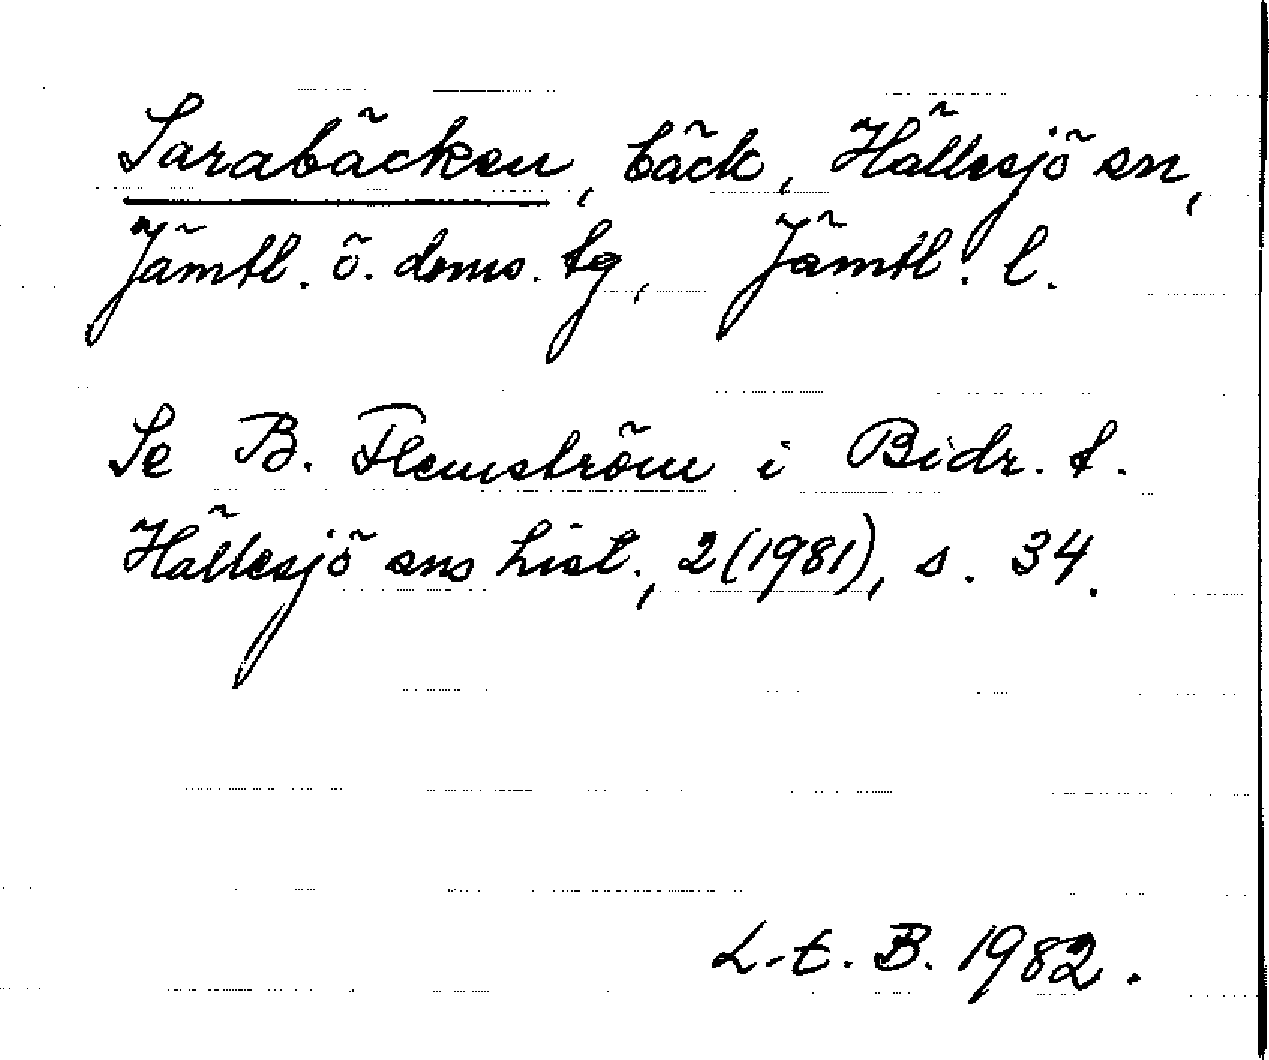 Sarabäcken, bäck, Hällesjö sn,
Jämtl. ö. doms. tg, Jämtl. l.
Se B. Flemström i Bidr. t.
Hällesjö sns hist., 2(1981), s. 34.
L-E. B. 1982.